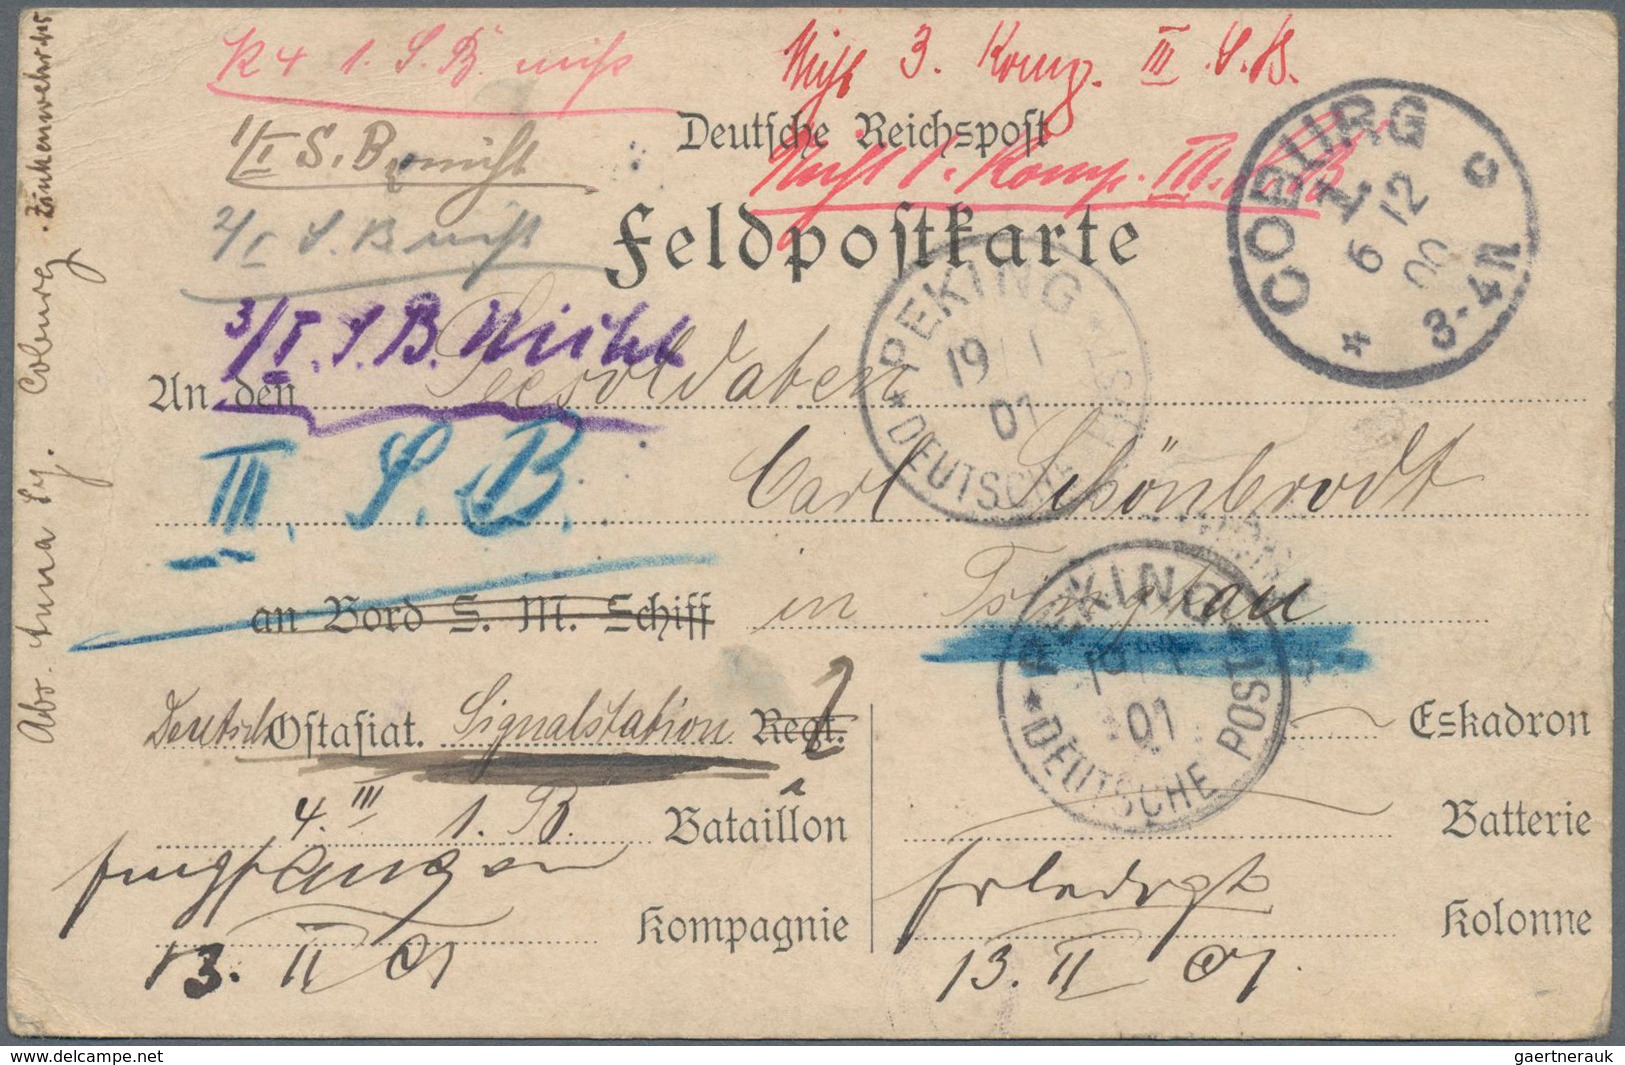 K 4 1. S. B. nicht
Nicht 3. Komp. III. S. B.
Deutsche Reichspost
1/I S. B. nicht
Nicht 1. Komp. III. S. B.
COBURG
1.
6 12
00
3-4N
c
*
2/I S. B. nicht
Feldpostkarte
3/I. S. B. Nicht
PEKING
19 1
01
* DEUTSCHE POST *
An den Seesoldaten
III. S. B.
Carl Schönbrodt
an Bord S. M. Schiff in Tsingtau
PEKING
19 1
01
* DEUTSCHE POST *
Deutsch Ostasiat. Signalstation Regt.
Eskadron
4. III 1. B. Bataillon
Batterie
Kompagnie
Erledigt
Kolonne
13. II 01
13. II 01.
Abs. Anna Coburg. Zinkenwehr
delcampe.net
gaertnerauk